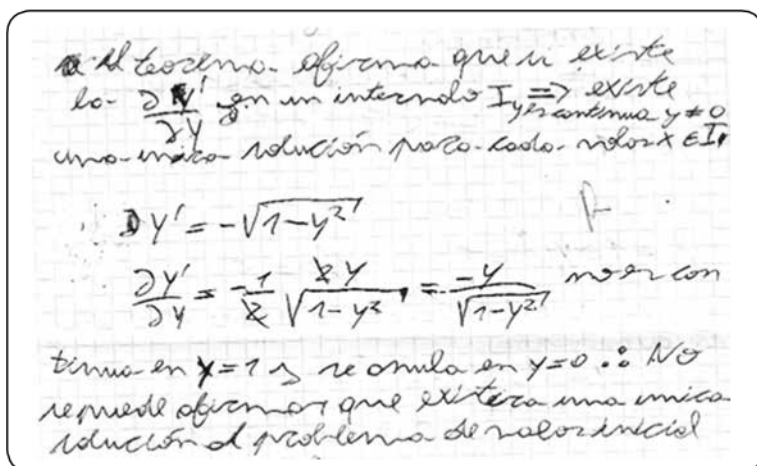 el teorema afirma que si existe
la ∂y'/∂y en un intervalo I y es continua y ≠ 0 ⇒ existe
una única solución para cada valor x ∈ I
y' = -√(1-y²)
∂y'/∂y = -1/2 2y/√(1-y²) = -y/√(1-y²) no es con
tinua en y=1 y se anula en y=0 ∴ No
se puede afirmar que existira una unica
solución al problema de valor inicial